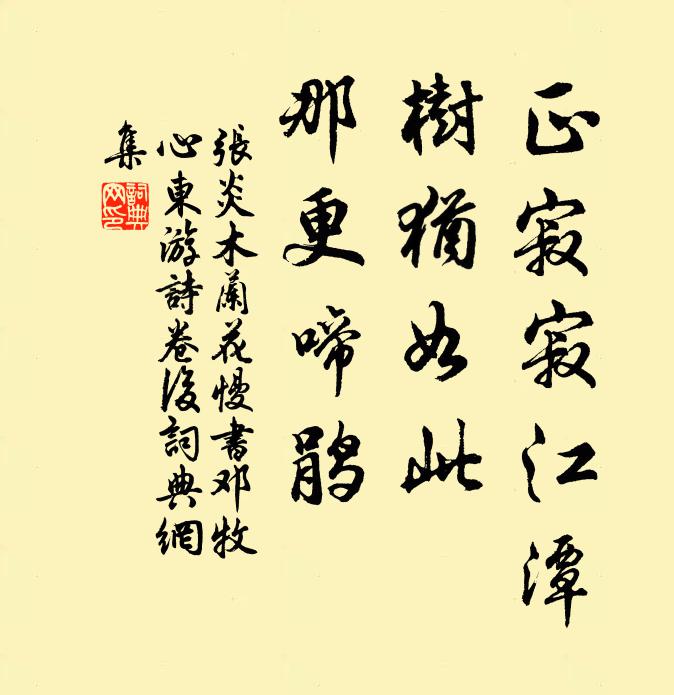 正寂寂江潭
樹猶如此
那更啼鹃
張炎木蘭花慢書邓牧
心東游詩卷後詞典網
集
詞典
网印